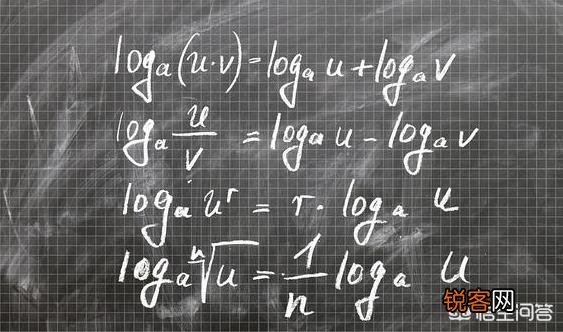 logₐ(u·v)=logₐ u+logₐ v
logₐ u/v = logₐ u - logₐ v
logₐ uʳ = r· logₐ u
logₐ ⁿ√u = 1/n logₐ u
锐客网
悟空问答